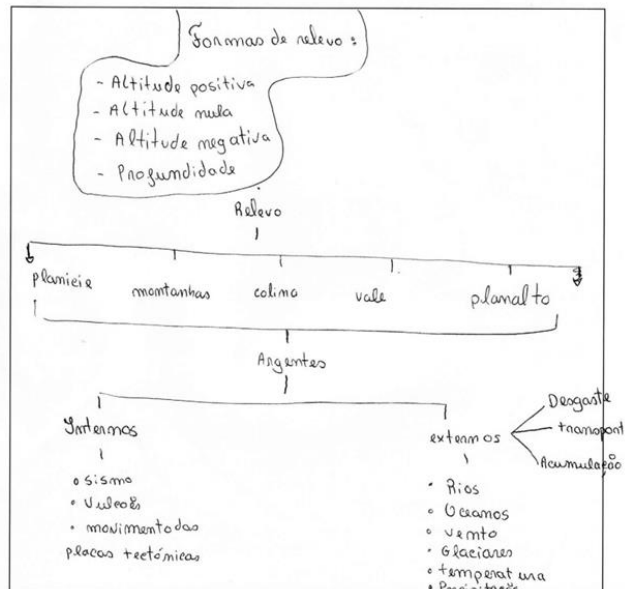 Formas de relevo:
- Altitude positiva
- Altitude nula
- Altitude negativa
- Profundidade
Relevo
planície montanhas colina vale planalto
Argentes
Internos
• sismo
• Vulcões
• movimento das
placas tectónicas
externos
Desgaste
transport
Acumulação
• Rios
• Oceanos
• vento
• Glaciares
• temperatura
• Precipitação